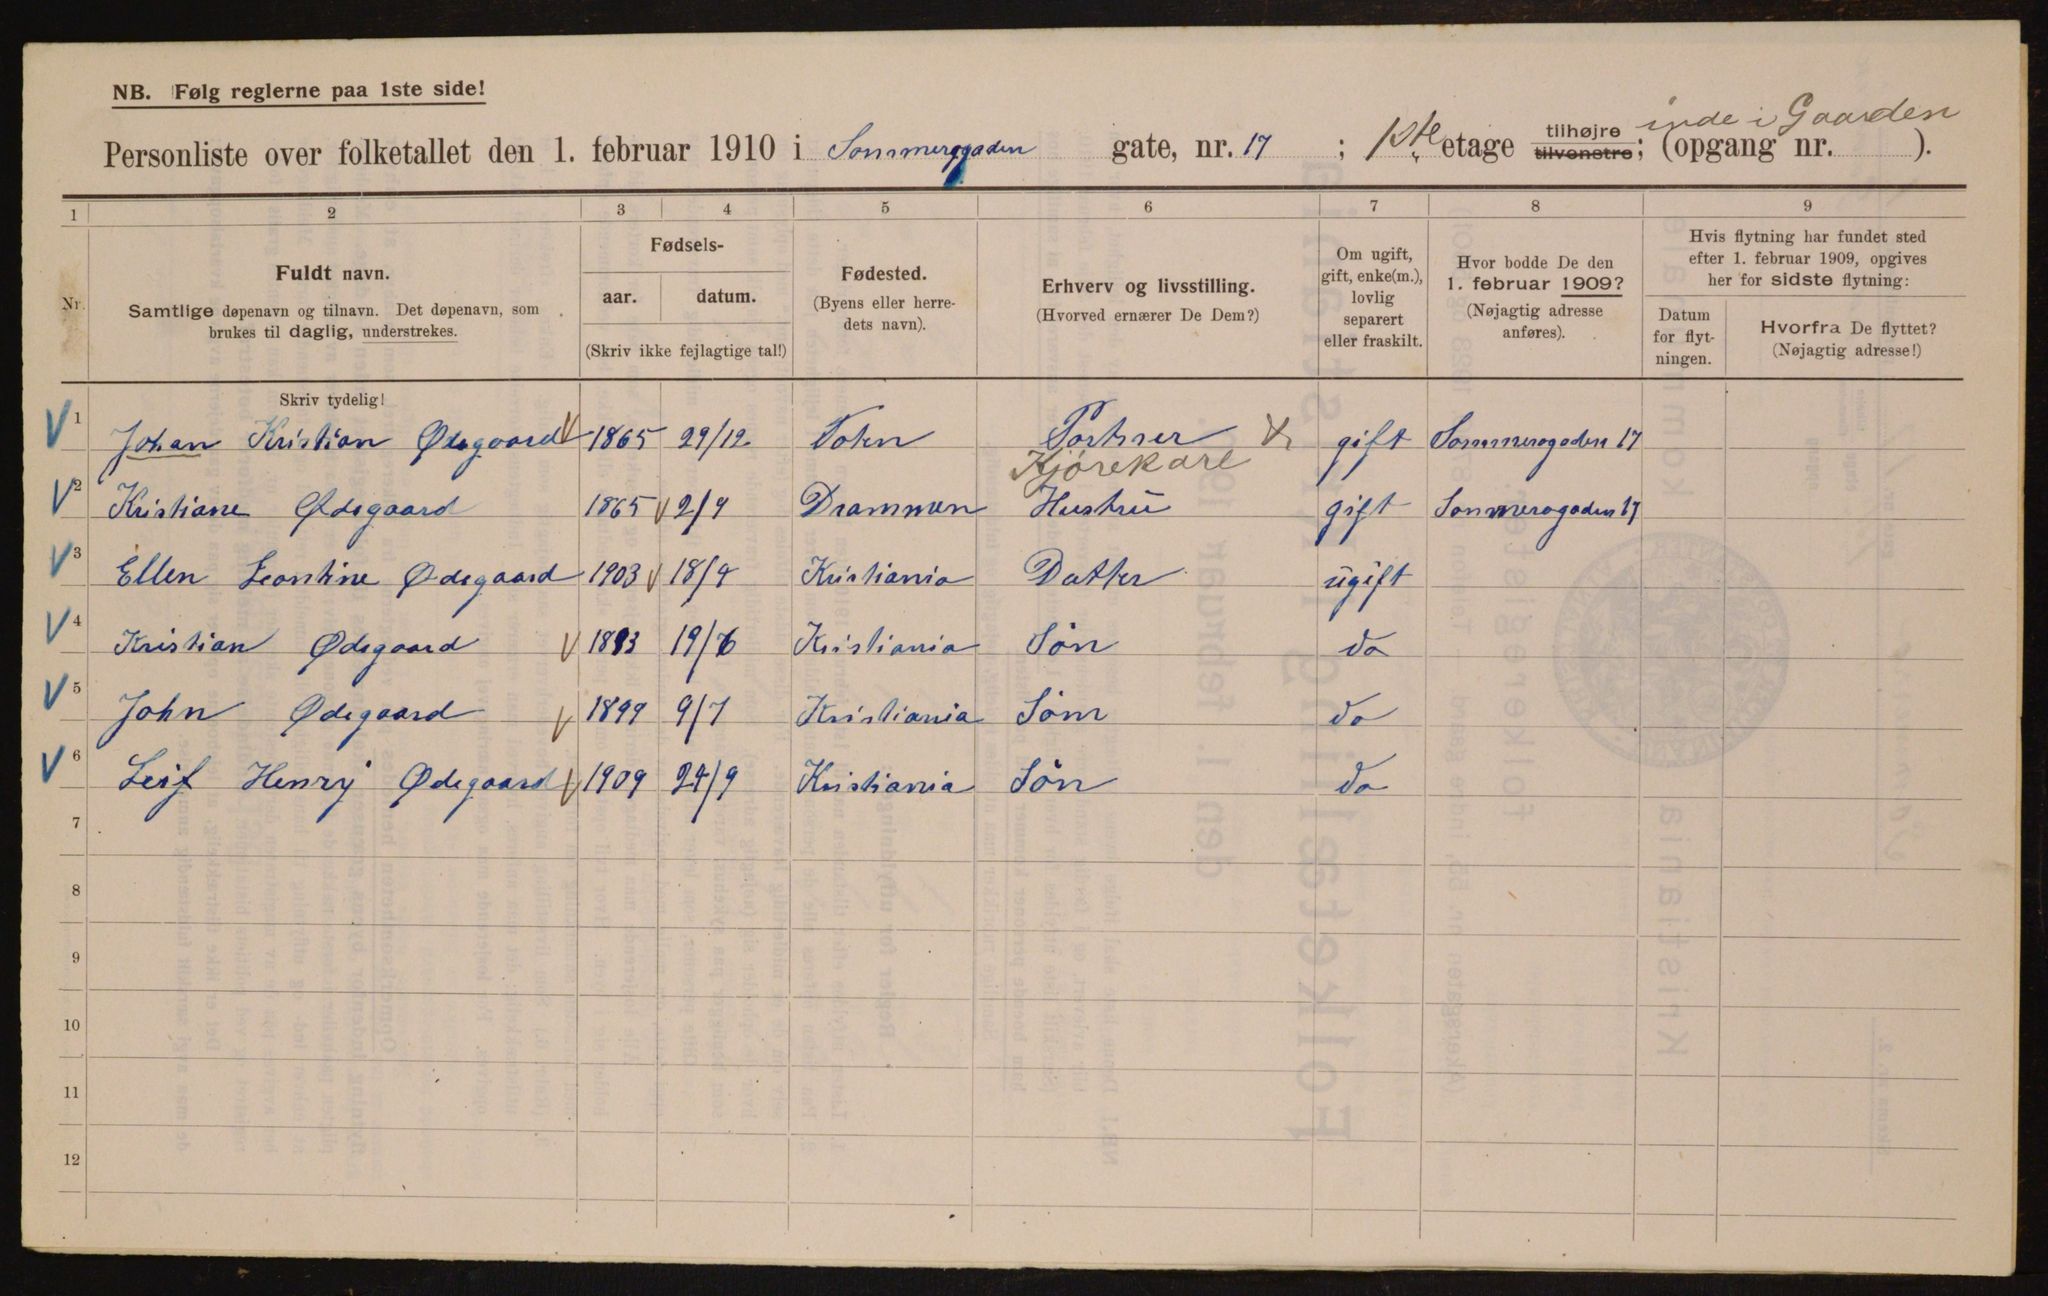 NB. Følg reglerne paa 1ste side!
inde i Gaarden
Personliste over folketallet den 1. februar 1910 i Sommerogaden gate, nr. 17 ; 1ste etage tilhøjre tilvenstre; (opgang nr. ).
1 2 3 4 5 6 7 8 9
Nr. Fuldt navn. Samtlige døpenavn og tilnavn. Det døpenavn, som brukes til daglig, understrekes.
Fødsels- aar. datum. (Skriv ikke fejlagtige tal!)
Fødested. (Byens eller herredets navn).
Erhverv og livsstilling. (Hvorved ernærer De Dem?)
Om ugift, gift, enke(m.), lovlig separert eller fraskilt.
Hvor bodde De den 1. februar 1909? (Nøjagtig adresse anføres).
Hvis flytning har fundet sted efter 1. februar 1909, opgives her for sidste flytning:
Datum for flytningen. Hvorfra De flyttet? (Nøjagtig adresse!)
Skriv tydelig!
1 Johan Kristian Ødegaard 1865 29/12 Toten Portner gift Sommerogaden 17
Kjørekarl
2 Kristiane Ødegaard 1865 2/9 Drammen Hustru gift Sommerogaden 17
3 Ellen Leontine Ødegaard 1903 18/9 Kristiania Datter ugift
4 Kristian Ødegaard 1893 19/6 Kristiania Søn do
5 John Ødegaard 1899 9/7 Kristiania Søm do
6 Leif Henry Ødegaard 1909 24/9 Kristiania Søn do
7
8
9
10
11
12